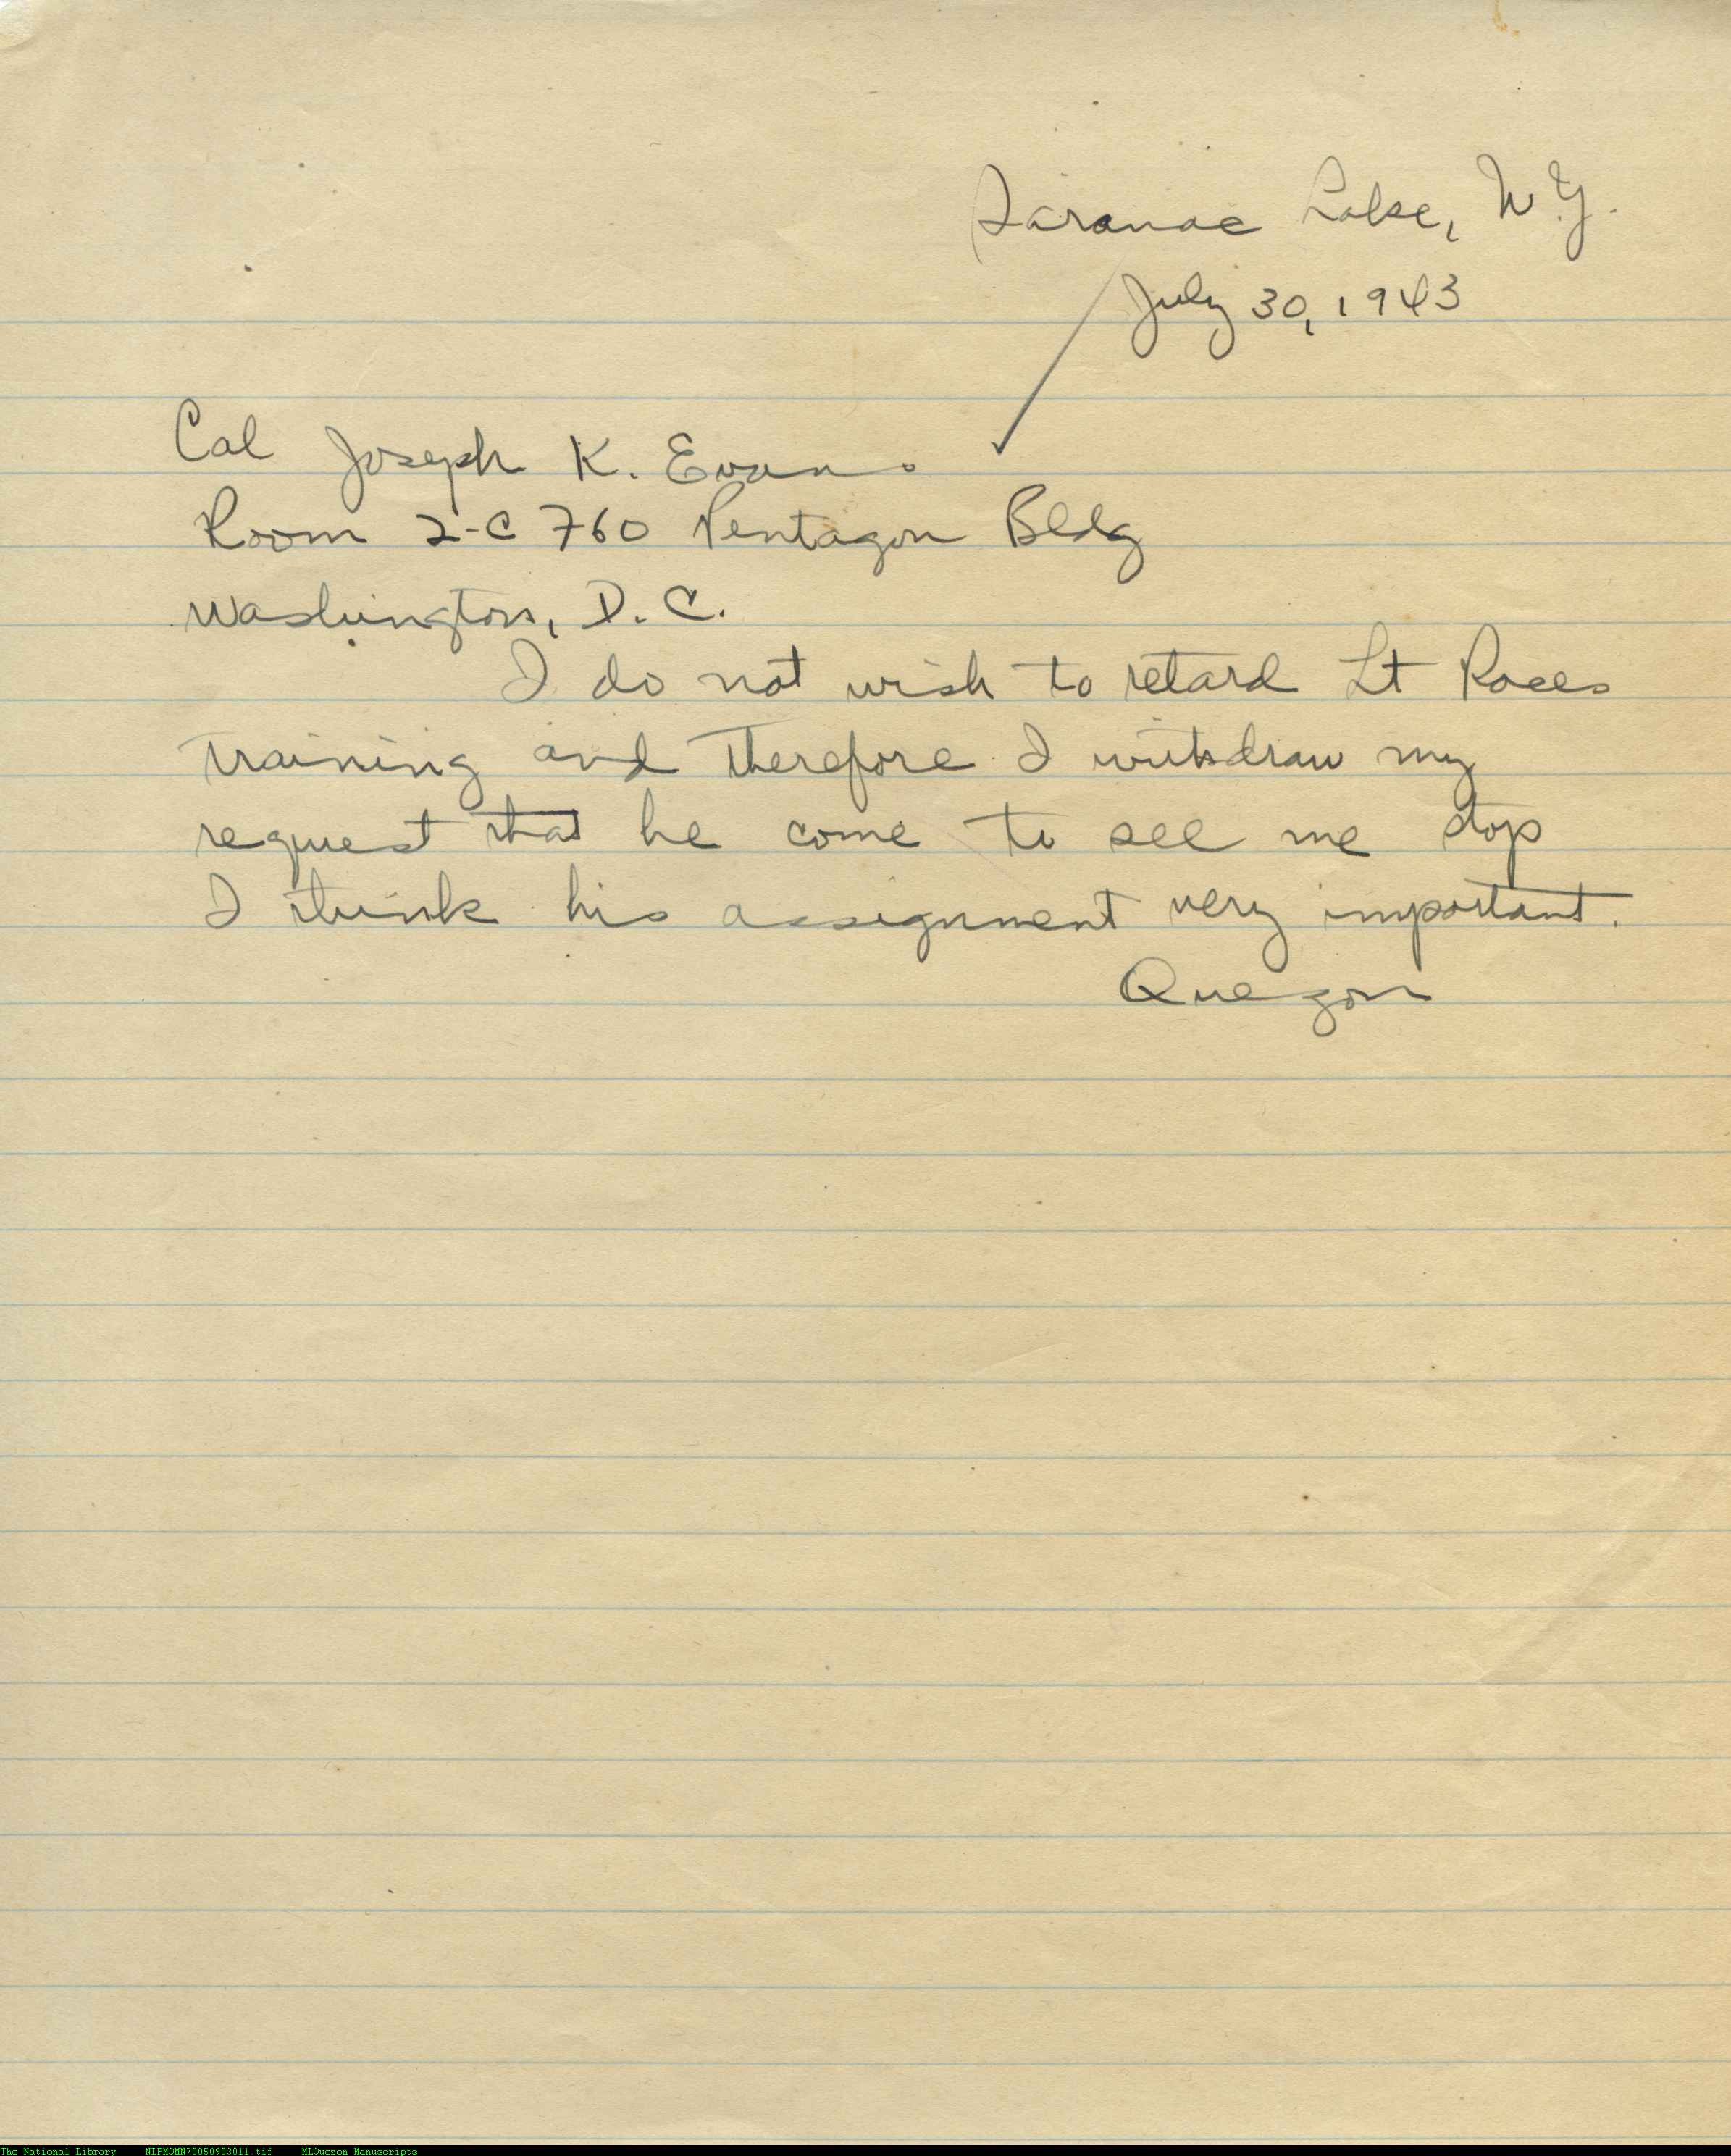 Saranac Lake, N.Y.
July 30, 1943
Col Joseph K. Evans
Room 2-C 760 Pentagon Bldg
Washington, D.C.
I do not wish to retard Lt Roces
training and therefore I withdraw my
request that he come to see me stop
I think his assignment very important.
Quezon
The National Library NLPMQMN70050903011.tif MLQuezon Manuscripts